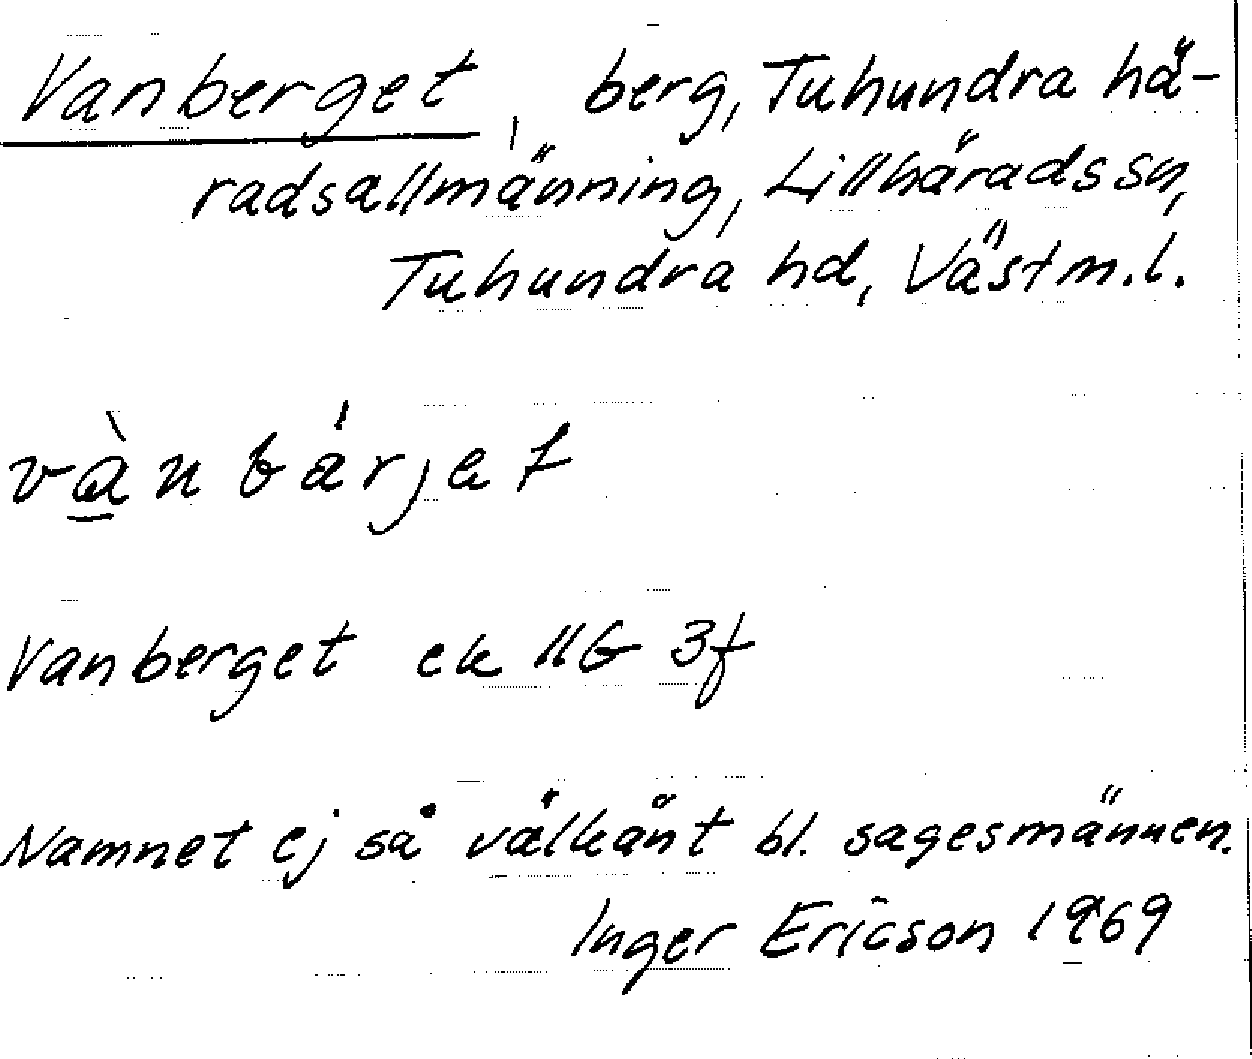 Vanberget, berg, Tuhundra hä-
radsallmänning, Lillhärads sn,
Tuhundra hd, Västm. l.
vànbárjet
Vanberget ek 11G 3f
Namnet ej så välkänt bl. sagesmännen.
Inger Ericson 1969